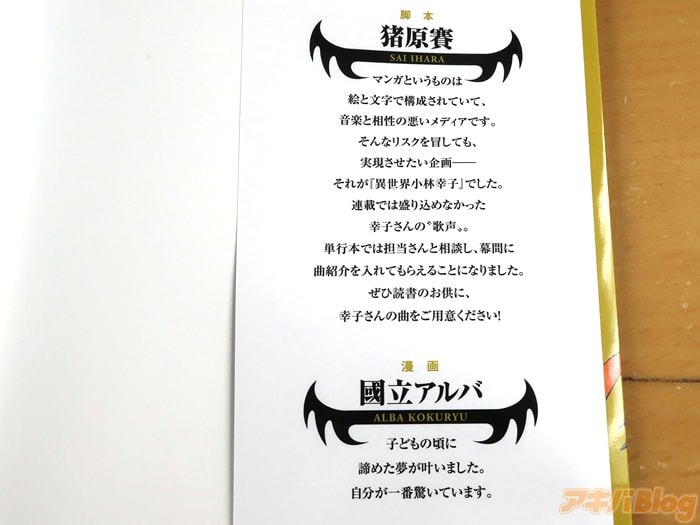 脚本
猪原賽
SAI IHARA
マンガというものは
絵と文字で構成されていて、
音楽と相性の悪いメディアです。
そんなリスクを冒しても、
実現させたい企画――
それが『異世界小林幸子』でした。
連載では盛り込めなかった
幸子さんの〝歌声〟。
単行本では担当さんと相談し、幕間に
曲紹介を入れてもらえることになりました。
ぜひ読書のお供に、
幸子さんの曲をご用意ください!
漫画
國立アルバ
ALBA KOKURYU
子どもの頃に
諦めた夢が叶いました。
自分が一番驚いています。
アキバBlog